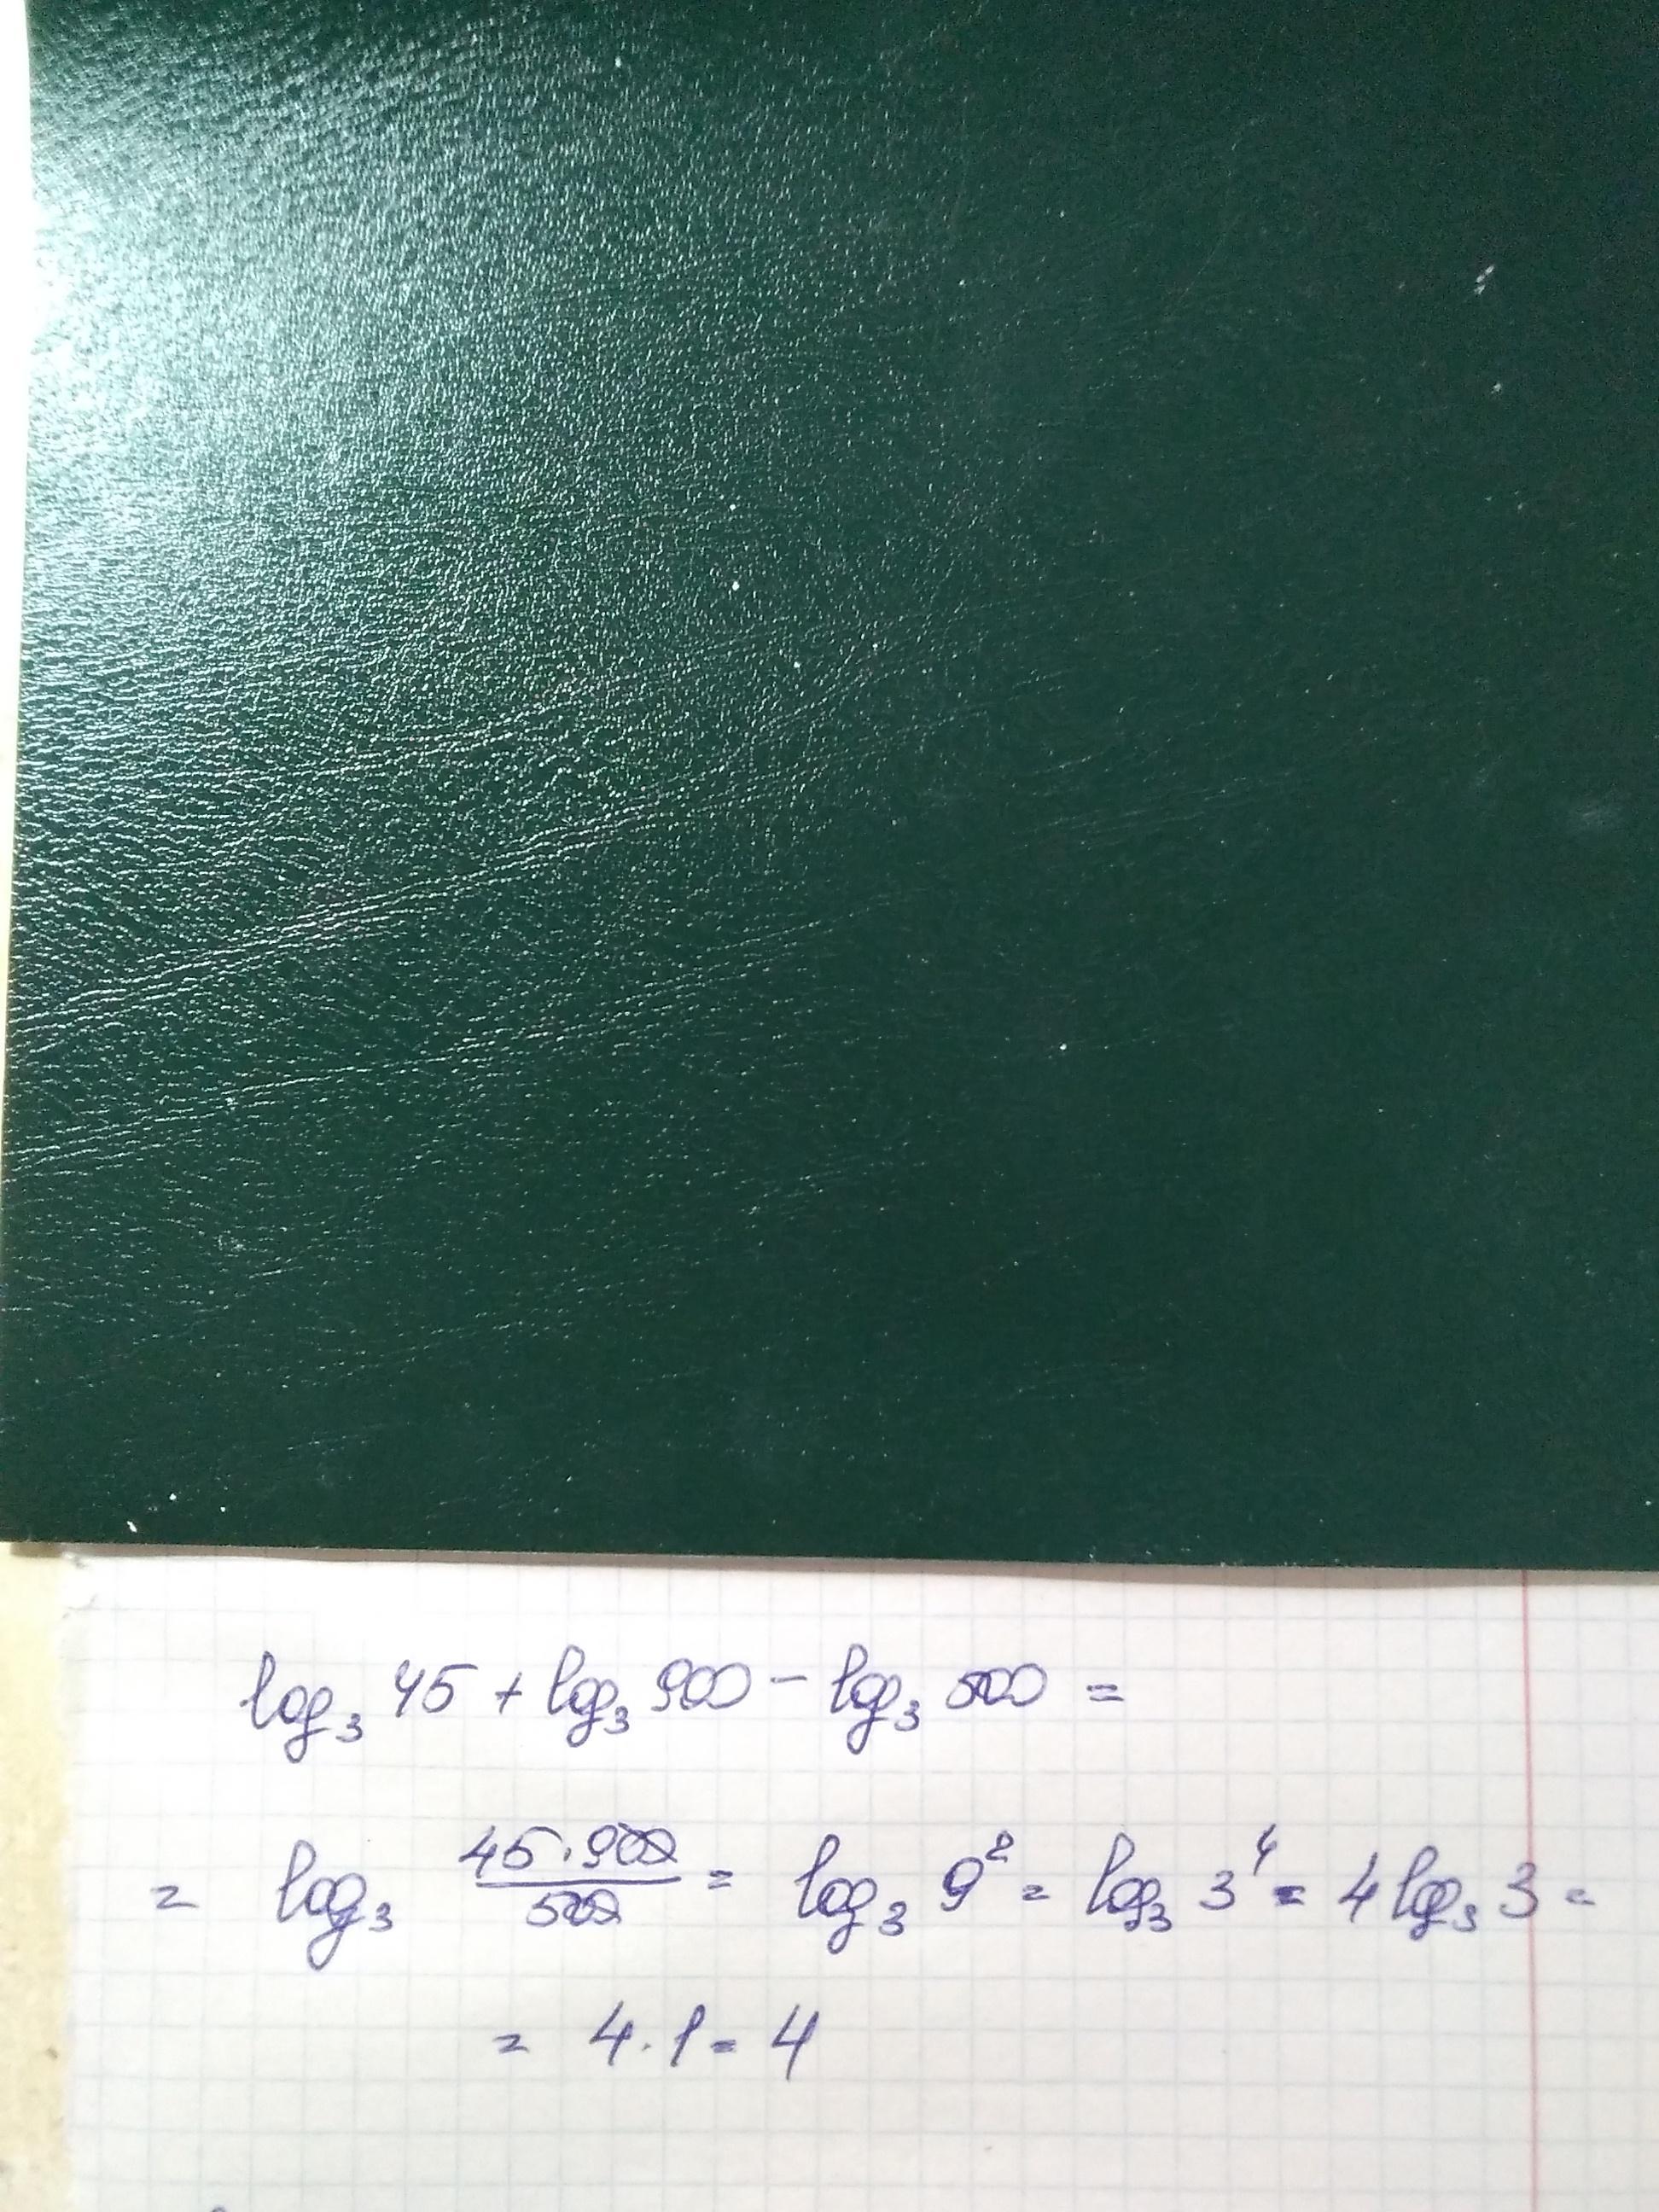 log₃ 45 + log₃ 900 − log₃ 500 =
= log₃ (45 · 900)/500 = log₃ 9² = log₃ 3⁴ = 4 log₃ 3 =
= 4 · 1 = 4